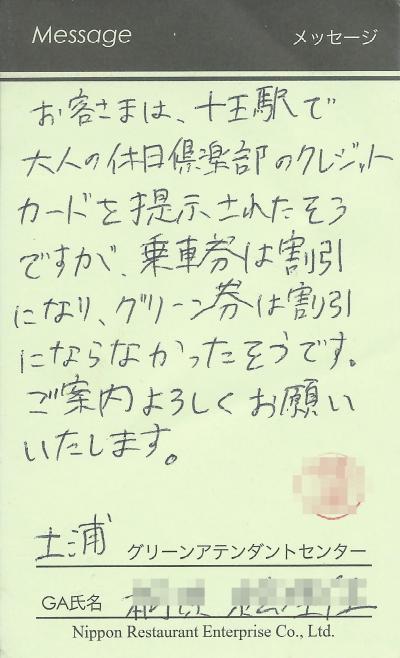 Message メッセージ
お客さまは、十王駅で
大人の休日倶楽部のクレジット
カードを提示されたそう
ですが、乗車券は割引
になり、グリーン券は割引
にならなかったそうです。
ご案内よろしくお願い
いたします。
土浦 グリーンアテンダントセンター
GA氏名
Nippon Restaurant Enterprise Co., Ltd.